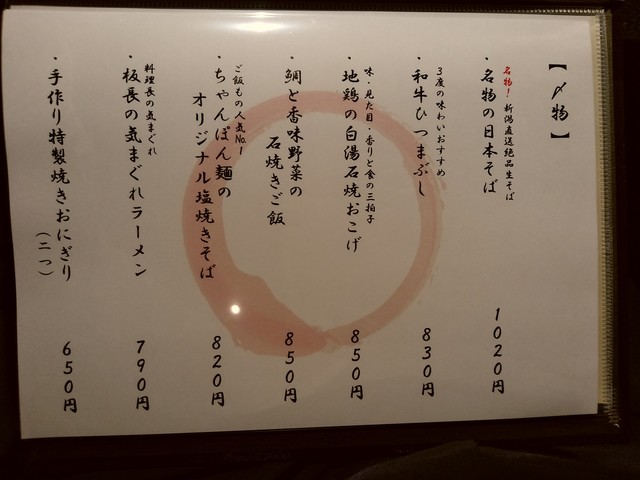 【〆物】
名物！ 新潟直送絶品生そば
・名物の日本そば 1020円
3度の味わいおすすめ
・和牛ひつまぶし 830円
味・見た目・香りと食の三拍子
・地鶏の白湯石焼おこげ 850円
・鯛と香味野菜の
石焼きご飯 850円
ご飯もの人気No.1
・ちゃんぽん麺の
オリジナル塩焼きそば 820円
料理長の気まぐれ
・板長の気まぐれラーメン 790円
・手作り特製焼きおにぎり
（二つ） 650円